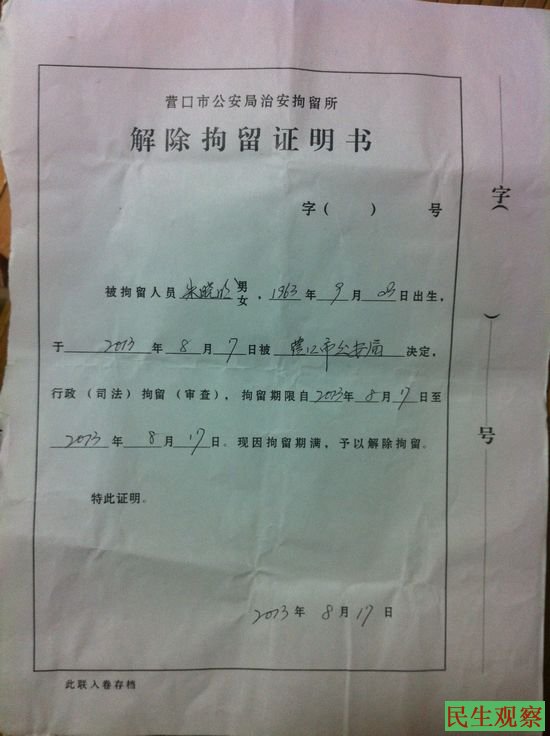 营口市公安局治安拘留所
解除拘留证明书
字（ ） 号
被拘留人员朱晓 男女，1963年9月 日出生，
于2013年8月7日被营口市公安局决定，
行政（司法）拘留（审查），拘留期限自2013年8月 日至
2013年8月17日。现因拘留期满，予以解除拘留。
特此证明。
2013年8月17日
此联入卷存档
字（ ） 号
民生观察